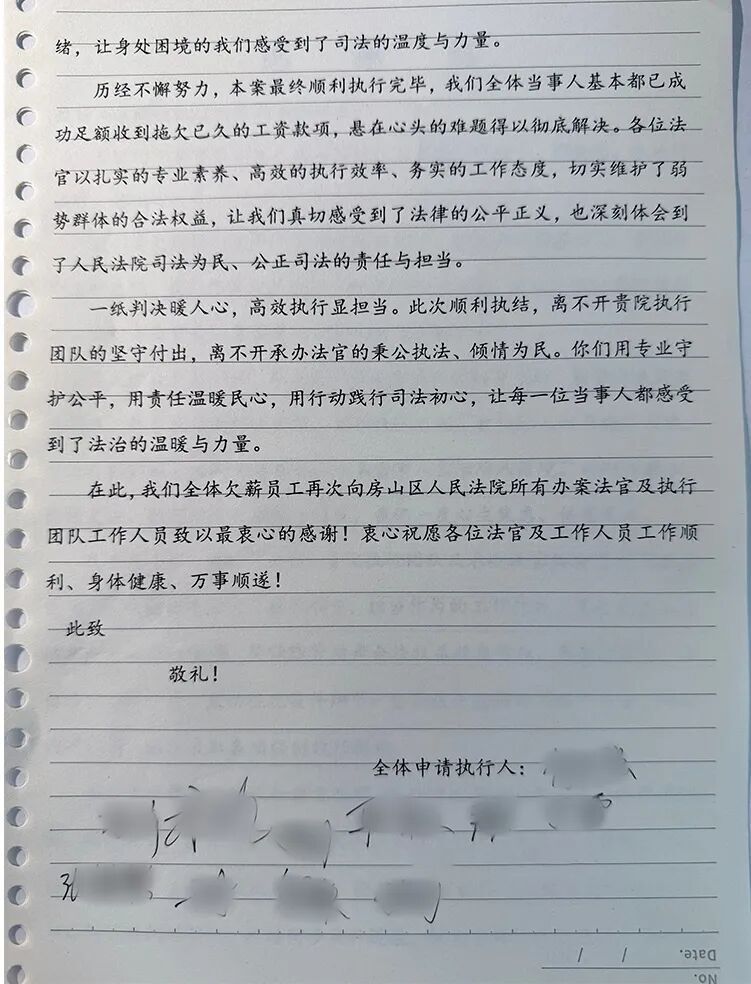 绪，让身处困境的我们感受到了司法的温度与力量。
历经不懈努力，本案最终顺利执行完毕，我们全体当事人基本都已成
功足额收到拖欠已久的工资款项，悬在心头的难题得以彻底解决。各位法
官以扎实的专业素养、高效的执行效率、务实的工作态度，切实维护了弱
势群体的合法权益，让我们真切感受到了法律的公平正义，也深刻体会到
了人民法院司法为民、公正司法的责任与担当。
一纸判决暖人心，高效执行显担当。此次顺利执结，离不开贵院执行
团队的坚守付出，离不开承办法官的秉公执法、倾情为民。你们用专业守
护公平，用责任温暖民心，用行动践行司法初心，让每一位当事人都感受
到了法治的温暖与力量。
在此，我们全体欠薪员工再次向房山区人民法院所有办案法官及执行
团队工作人员致以最衷心的感谢！衷心祝愿各位法官及工作人员工作顺
利、身体健康、万事顺遂！
此致
敬礼！
全体申请执行人：
Date. / /
No.